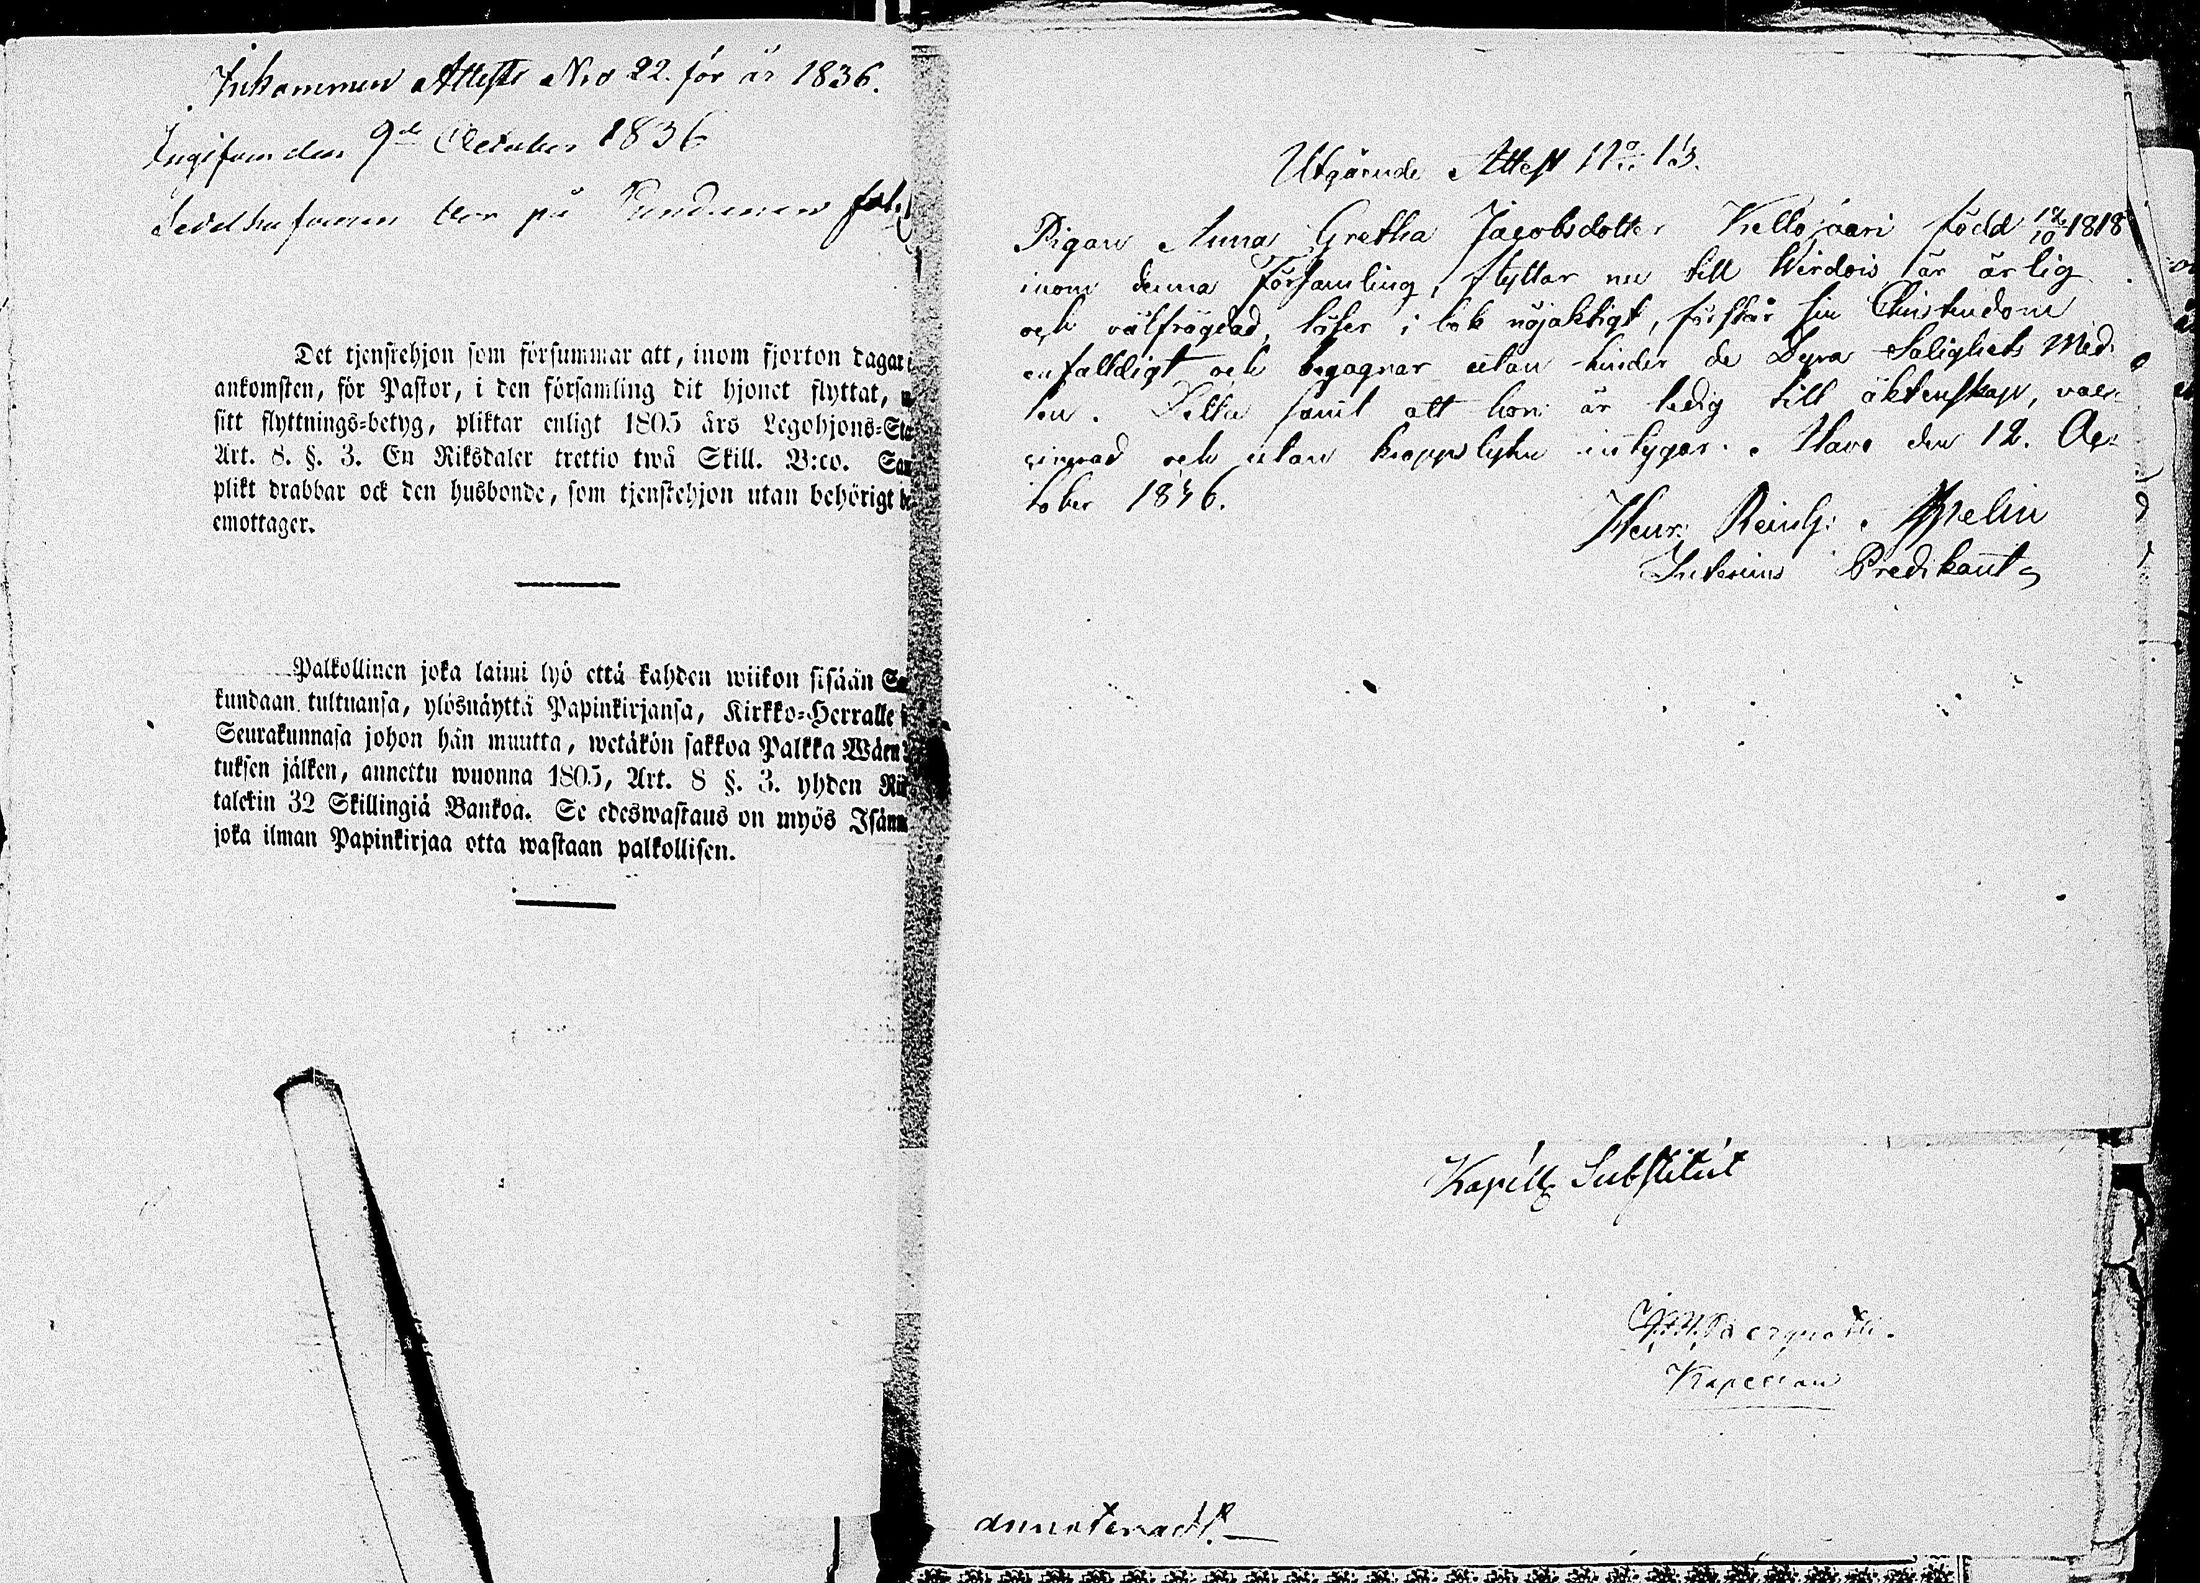 Inkommen Attest Nro 22. för år 1836.
Ingifven den 9de October 1836
på
Det tjenstehjon som försummar att, inom fjorton dagar
ankomsten, för Pastor, i den församling dit hjonet flyttat,
sitt flyttnings-betyg, pliktar enligt 1805 års Legohjons-Sta
Art. 8. §. 3. En Riksdaler trettio twå Skill. B:co. Sam
plikt drabbar ock den husbonde, som tjenstehjon utan behörigt be
emottager.
Palkollinen joka laimi lyö että kahden wiikon sisään Se
kundaan tultuansa, ylösnäyttä Papinkirjansa, Kirkko-Herralle
Seurakunnasa johon hän muutta, wetäkön sakkoa Palkka Wäen
tuksen jälken, annettu wuonna 1805, Art. 8 §. 3. yhden Rik
talerin 32 Skillingiä Bankoa. Se edeswastaus on myös Isänn
joka ilman Papinkirjaa otta wastaan palkollisen.
Utgående Attest No 13.
Pigan Anna Gretha Jacobsdotter Kellojärvi född 12/10 1818
inom denna Församling, flyttar nu till Wirdois är ärlig
och välfrägdad, läser i bok nöjaktigt, förstår sin Christendom
enfaldigt och begagnar utan hinder de Dyra Salighets Med-
len. Detta samt att hon är ledig till äktenskap, vac-
cinerad och utan kroppslyten intygar. Alavo den 12. Oc-
tober 1846.
Henr: Reinh: Appelin
Interims Predikant
Kapells Substitut
Kapellan
annoteradt.